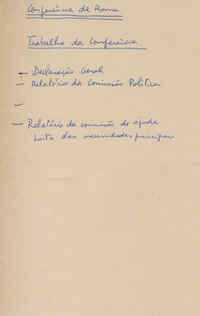 Conferência de Roma
Trabalho da Conferência
— Declaração Geral
— Relatório da Comissão Política
—
— Relatório da comissão de ajuda
lista das necessidades principais